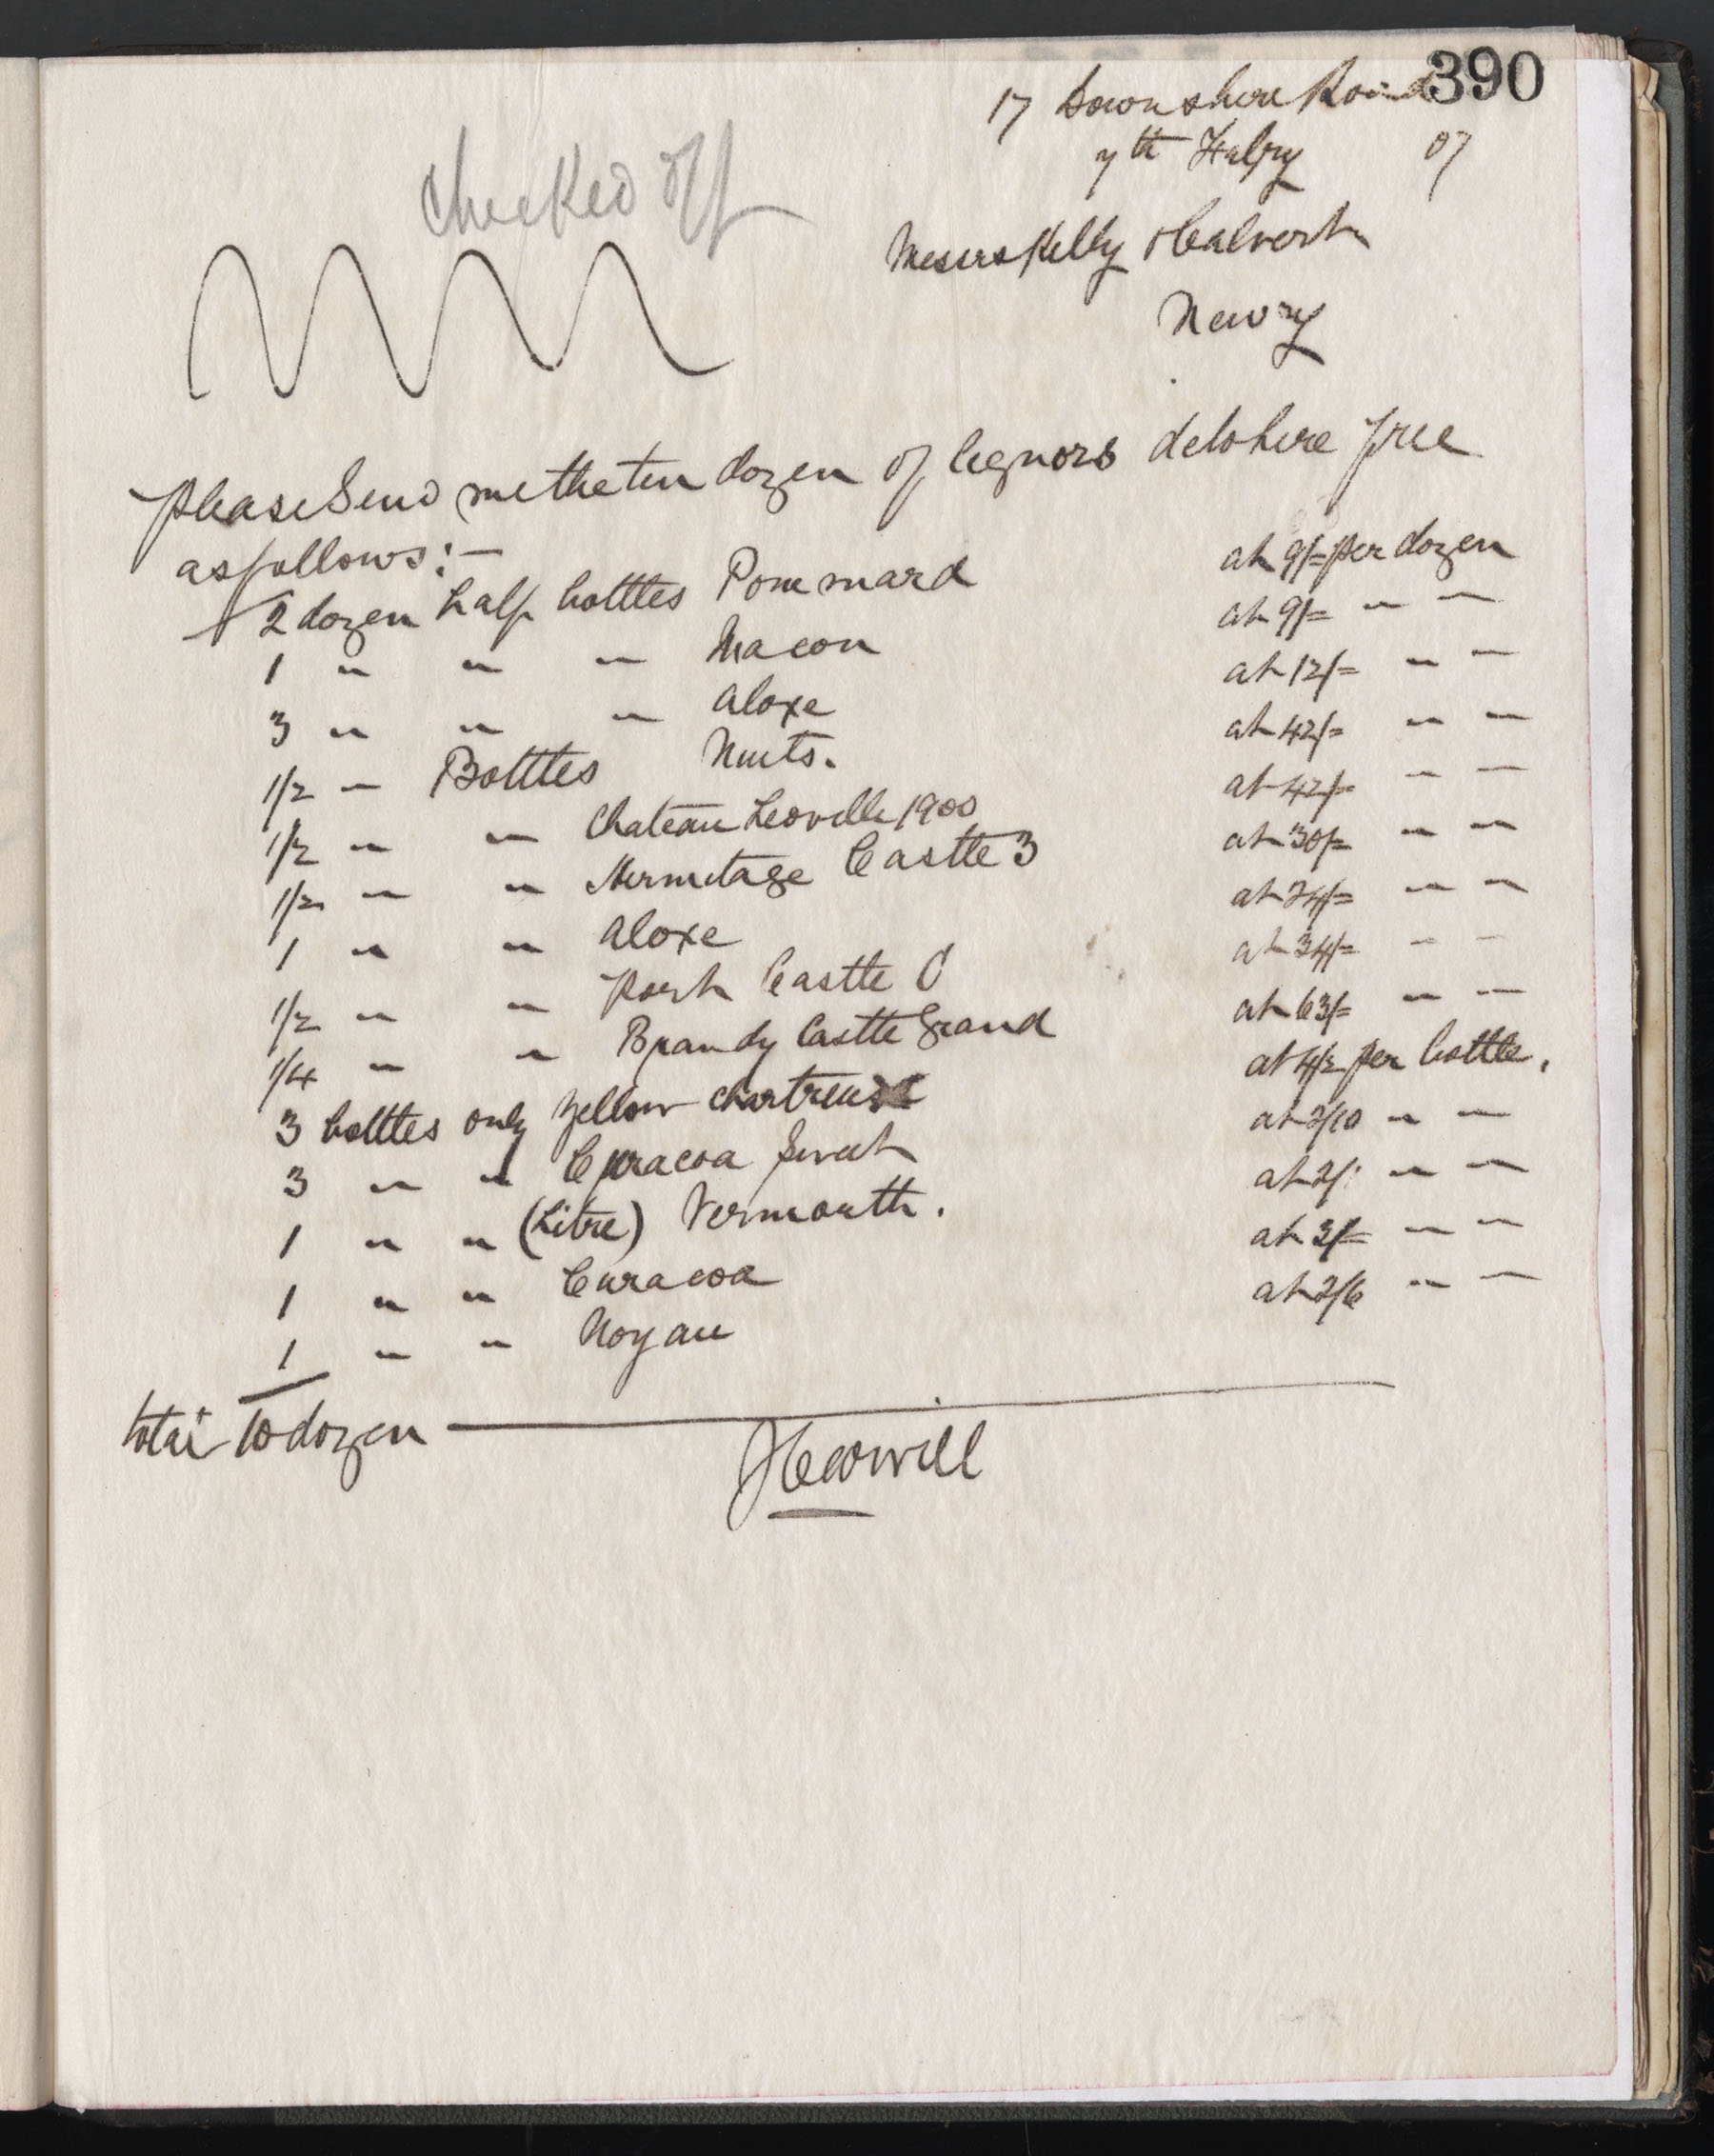 390
17 Downshire Road
7th Febry 07
checked off
Messrs Kelly & Calvert
Newry
Please Send me the ten dozen of liquors delohere free
as follows:-
2 dozen half bottles Pommard at 9/= per dozen
1 " " " Macon at 9/= " "
3 " " " Aloxe at 12/= " "
1/2 " Botttes Nuits. at 42/= " "
1/2 " " Chateau Leoville 1900 at 42/= " "
1/2 " " Hermitage Castle 3 at 30/= " "
1 " " Aloxe at 24/= " "
1/2 " " Port Castle C at 34/= " "
1/4 " " Brandy Castle Grand at 63/= " "
3 botttes only Yellow chartreuse at 4/2 per bottle.
3 " " Curacoa Sweet at 2/10 " "
1 " " (Litre) Vermouth. at 2/: " "
1 " " Curacoa at 3/= " "
1 " " Noyau at 2/6 " "
total 10 dozen